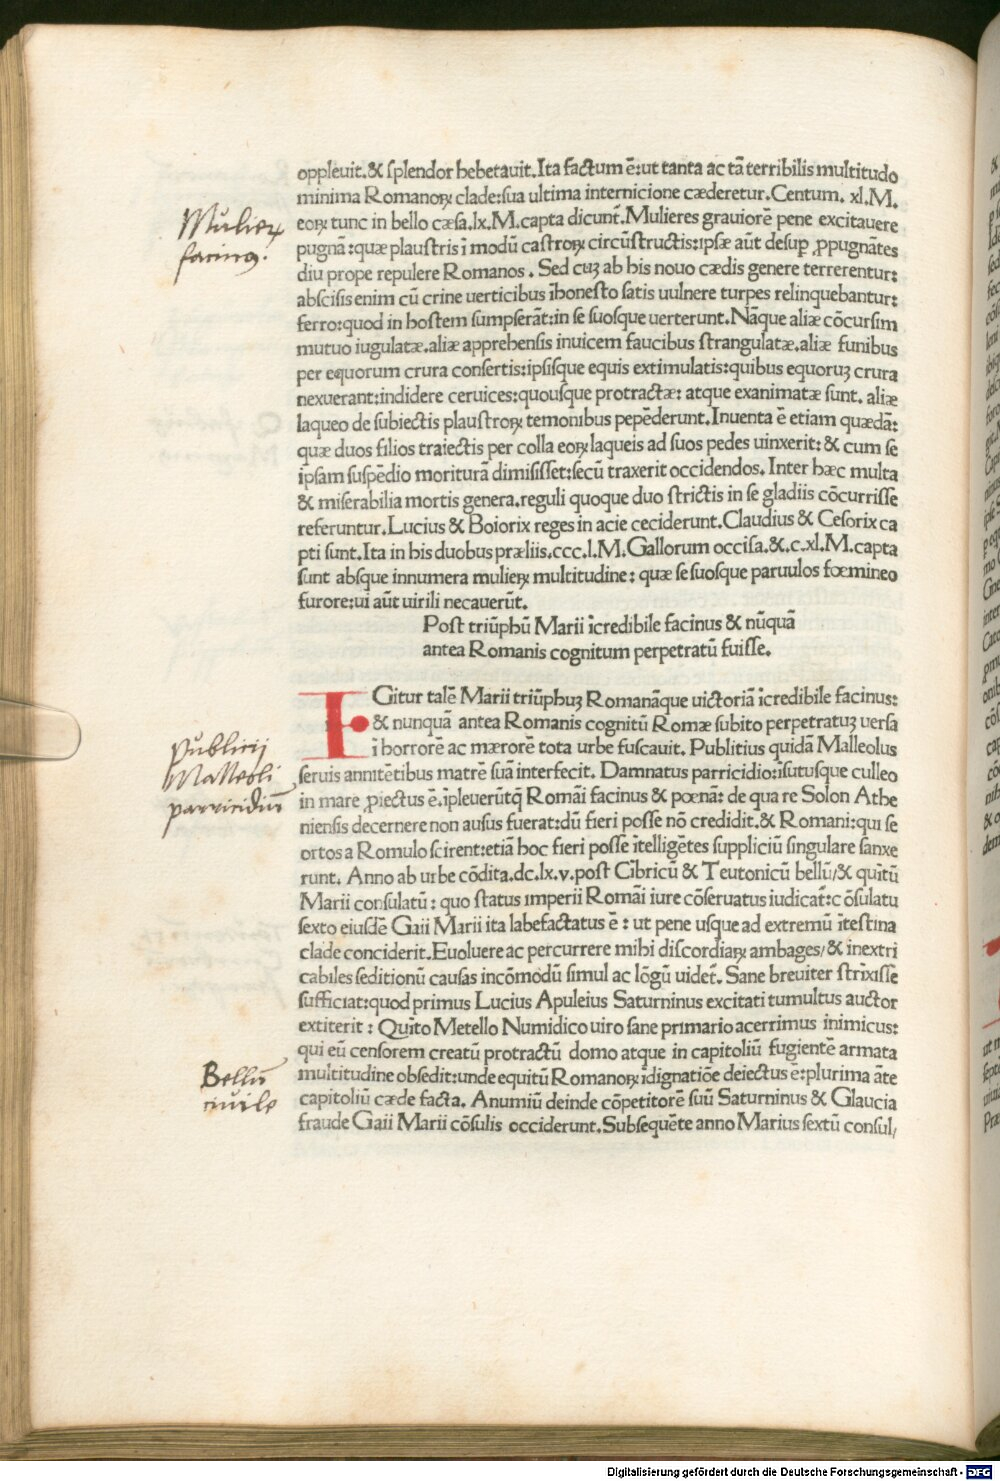 oppleuit.& ſplendor hebetauit.Ita factum ē:ut tanta ac tā terribilis multitudo
minima Romanoꝝ clade:ſua ultima internicione cæderetur.Centum. xl.M.
eoꝝ tunc in bello cæſa.lx.M.capta dicunt̄.Mulieres grauiorē pene excitauere
Mulieꝝ
facinꝰ.
pugnā:quæ plauſtris ī modū caſtroꝝ circūſtructis:ipſæ aūt deſuꝑ ꝓpugnātes
diu prope repulere Romanos. Sed cuꝫ ab his nouo cædis genere terrerentur:
abſciſis enim cū crine uerticibus īhoneſto ſatis uulnere turpes relinquebantur:
ferro:quod in hoſtem ſumpſerāt:in ſe ſuoſque uerterunt.Nāque aliæ cōcurſim
mutuo iugulatæ.aliæ apprehenſis inuicem faucibus ſtrangulatæ.aliæ funibus
per equorum crura conſertis:ipſiſque equis extimulatis:quibus equoruꝫ crura
nexuerant:indidere ceruices:quouſque protractæ: atque exanimatæ ſunt. aliæ
laqueo de ſubiectis plauſtroꝝ temonibus pepēderunt.Inuenta ē etiam quædā:
quæ duos filios traiectis per colla eoꝝ laqueis ad ſuos pedes uinxerit: & cum ſe
ipſam ſuſpēdio moriturā dimiſiſſet:ſecū traxerit occidendos. Inter hæc multa
& miſerabilia mortis genera.reguli quoque duo ſtrictis in ſe gladiis cōcurriſſe
referuntur.Lucius & Boiorix reges in acie ceciderunt.Claudius & Ceſorix ca
pti ſunt.Ita in his duobus præliis.ccc.l.M.Gallorum occiſa.&.c.xl.M.capta
ſunt abſque innumera mulieꝝ multitudine: quæ ſe ſuoſque paruulos fœmineo
furore:ui aūt uirili necauerūt.
Poſt triūphū Marii īcredibile facinus & nūquā
antea Romanis cognitum perpetratū fuiſſe.
IGitur talē Marii triūphuꝫ Romanāque uictoriā īcredibile facinus:
& nunquā antea Romanis cognitū Romæ ſubito perpetratuꝫ uerſa
ī horrorē ac mærorē tota urbe fuſcauit. Publitius quidā Malleolus
Publicij
Malleoli
parricidiū
ſeruis annitētibus matrē ſuā interfecit. Damnatus parricidio:iſutuſque culleo
in mare ꝓiectus ē.ipleuerūtq̄ Romāi facinus & pœnā: de qua re Solon Athe
nienſis decernere non auſus fuerat:dū fieri poſſe nō credidit.& Romani:qui ſe
ortos a Romulo ſcirent:etiā hoc fieri poſſe ītelligētes ſuppliciū ſingulare ſanxe
runt. Anno ab urbe cōdita.dc.lx.v.poſt Cibricū & Teutonicū bellū/& quītū
Marii conſulatū: quo ſtatus imperii Romāi iure cōſeruatus iudicat̄:c ōſulatu
ſexto eiuſdē Gaii Marii ita labefactatus ē: ut pene uſque ad extremū īteſtina
clade conciderit.Euoluere ac percurrere mihi diſcordiaꝝ ambages/& inextri
cabiles ſeditionū cauſas incōmodū ſimul ac lōgū uidet̄. Sane breuiter ſtrīxiſſe
ſufficiat:quod primus Lucius Apuleius Saturninus excitati tumultus auctor
extiterit: Quīto Metello Numidico uiro ſane primario acerrimus inimicus:
qui eū cenſorem creatū protractū domo atque in capitoliū fugientē armata
Bellū
ciuile
multitudine obſedit:unde equitū Romanoꝝ īdignatiōe deiectus ē:plurima āte
capitoliū cæde facta. Anumiū deinde cōpetitorē ſuū Saturninus & Glaucia
fraude Gaii Marii cōſulis occiderunt.Subſequēte anno Marius ſextū conſul/
Digitalisierung gefördert durch die Deutsche Forschungsgemeinschaft - DFG